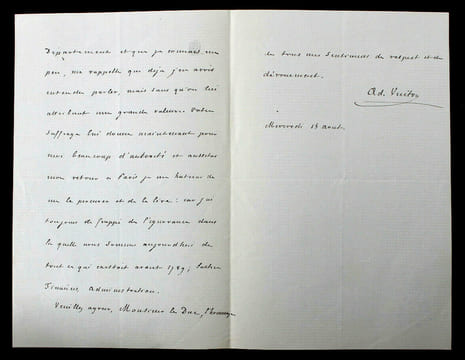 Département et que je connais un
peu, me rappelle que déjà j'en avois
entendu parler, mais sans qu'on lui
attribuat une grande valeur. Votre
suffrage lui donne maintenant pour
moi beaucoup d'autorité et aussitôt
mon retour à Paris je me hâterai de
me le procurer et de le lire : car j'ai
toujours été frappé de l'ignorance dans
la quelle nous sommes aujourd'hui de
tout ce qui existoit avant 1789 ;
Finances, Administration.
Veuillez agréer, Monsieur le Duc, l'hommage
de tous mes sentiments de respect et de
dévouement.
Ad. Vuitry
Mercredi 13 août.